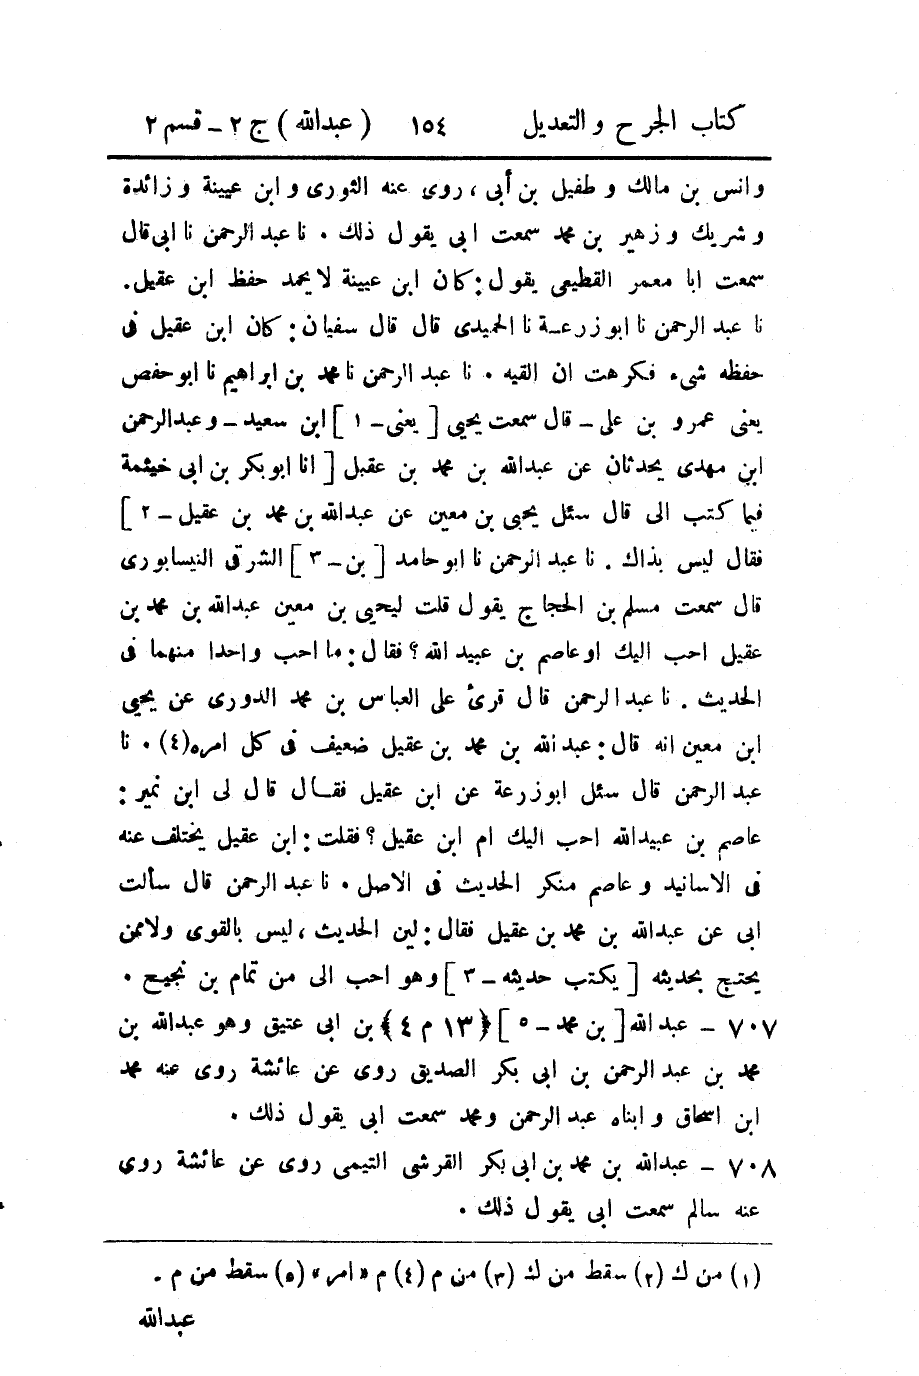 كتاب الجرح والتعديل ١٥٤ (عبدالله) ج ٢ ـ قسم ٢
وانس بن مالك وطفيل بن أبى ، روى عنه الثورى وابن عيينة وزائدة
وشريك وزهير بن محمد سمعت ابى يقول ذلك . نا عبد الرحمن نا ابى قال
سمعت ابا معمر القطيعى يقول : كان ابن عيينة لا يحمد حفظ ابن عقيل .
نا عبد الرحمن نا ابو زرعة نا الحميدى قال قال سفيان : كان ابن عقيل فى
حفظه شىء فكرهت ان القيه . نا عبد الرحمن نا محمد بن ابراهيم نا ابو حفص
يعنى عمرو بن على ـ قال سمعت يحيى [ يعنى ـ ١ ] ابن سعيد ـ وعبدالرحمن
ابن مهدى يحدثان عن عبدالله بن محمد بن عقيل [ انا ابو بكر بن ابى خيثمة
فيما كتب الى قال سئل يحيى بن معين عن عبدالله بن محمد بن عقيل ـ ٢ ]
فقال ليس بذاك . نا عبد الرحمن نا ابو حامد [ بن ـ ٣ ] الشرقى النيسابورى
قال سمعت مسلم بن الحجاج يقول قلت ليحيى بن معين عبدالله بن محمد بن
عقيل احب اليك او عاصم بن عبيد الله ؟ فقال : ما احب واحدا منهما فى
الحديث . نا عبد الرحمن قال قرئ على العباس بن محمد الدورى عن يحيى
ابن معين انه قال : عبد الله بن محمد بن عقيل ضعيف فى كل امره (٤) . نا
عبد الرحمن قال سئل ابو زرعة عن ابن عقيل فقال قال لى ابن نمير :
عاصم بن عبيدالله احب اليك ام ابن عقيل ؟ فقلت : ابن عقيل يختلف عنه
فى الاسانيد وعاصم منكر الحديث فى الاصل . نا عبد الرحمن قال سألت
ابى عن عبدالله بن محمد بن عقيل فقال : لين الحديث ، ليس بالقوى ولا ممن
يحتج بحديثه [ يكتب حديثه ـ ٣ ] وهو احب الى من تمام بن نجيح .
٧٠٧ ـ عبد الله [ بن محمد ـ ٥ ] ﴿ ١٣ م ٤ ﴾ بن ابى عتيق وهو عبدالله بن
محمد بن عبد الرحمن بن ابى بكر الصديق روى عن عائشة روى عنه محمد
ابن اسحاق وابناه عبد الرحمن ومحمد سمعت ابى يقول ذلك .
٧٠٨ ـ عبدالله بن محمد بن ابى بكر القرشى التيمى روى عن عائشة روى
عنه سالم سمعت ابى يقول ذلك .
(١) من ك (٢) سقط من ك (٣) من م (٤) م « امر » (٥) سقط من م .
عبدالله